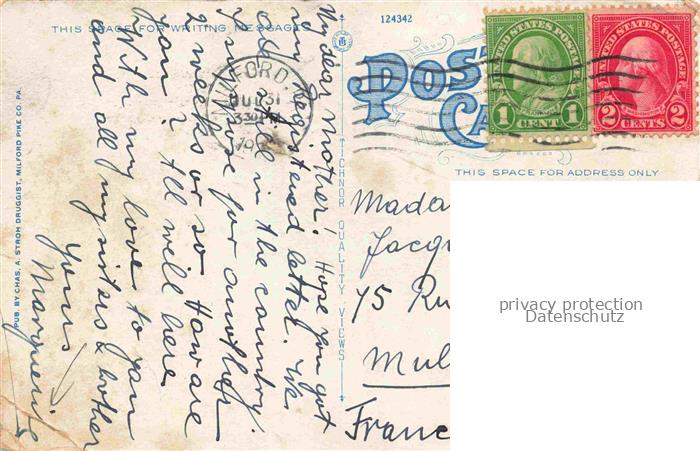 THIS SPACE FOR WRITING MESSAGES
124342
My dear Mother! Hope you got
my Registered letter. We
are still in the country.
I suppose for another
2 weeks or so How are
you? All well here
With my love to you
and all my sisters & bother
Yours
Marguerite
PUB. BY CHAS. A. STROH DRUGGIST, MILFORD PIKE CO. PA.
TICHNOR QUALITY VIEWS
MILFORD
31
330
19
UNITED STATES POSTAGE
1 CENT 1
UNITED STATES POSTAGE
2 CENTS 2
POST
CA
THIS SPACE FOR ADDRESS ONLY
Mada
Jacq
75 Ru
Mul
France
privacy protection
Datenschutz